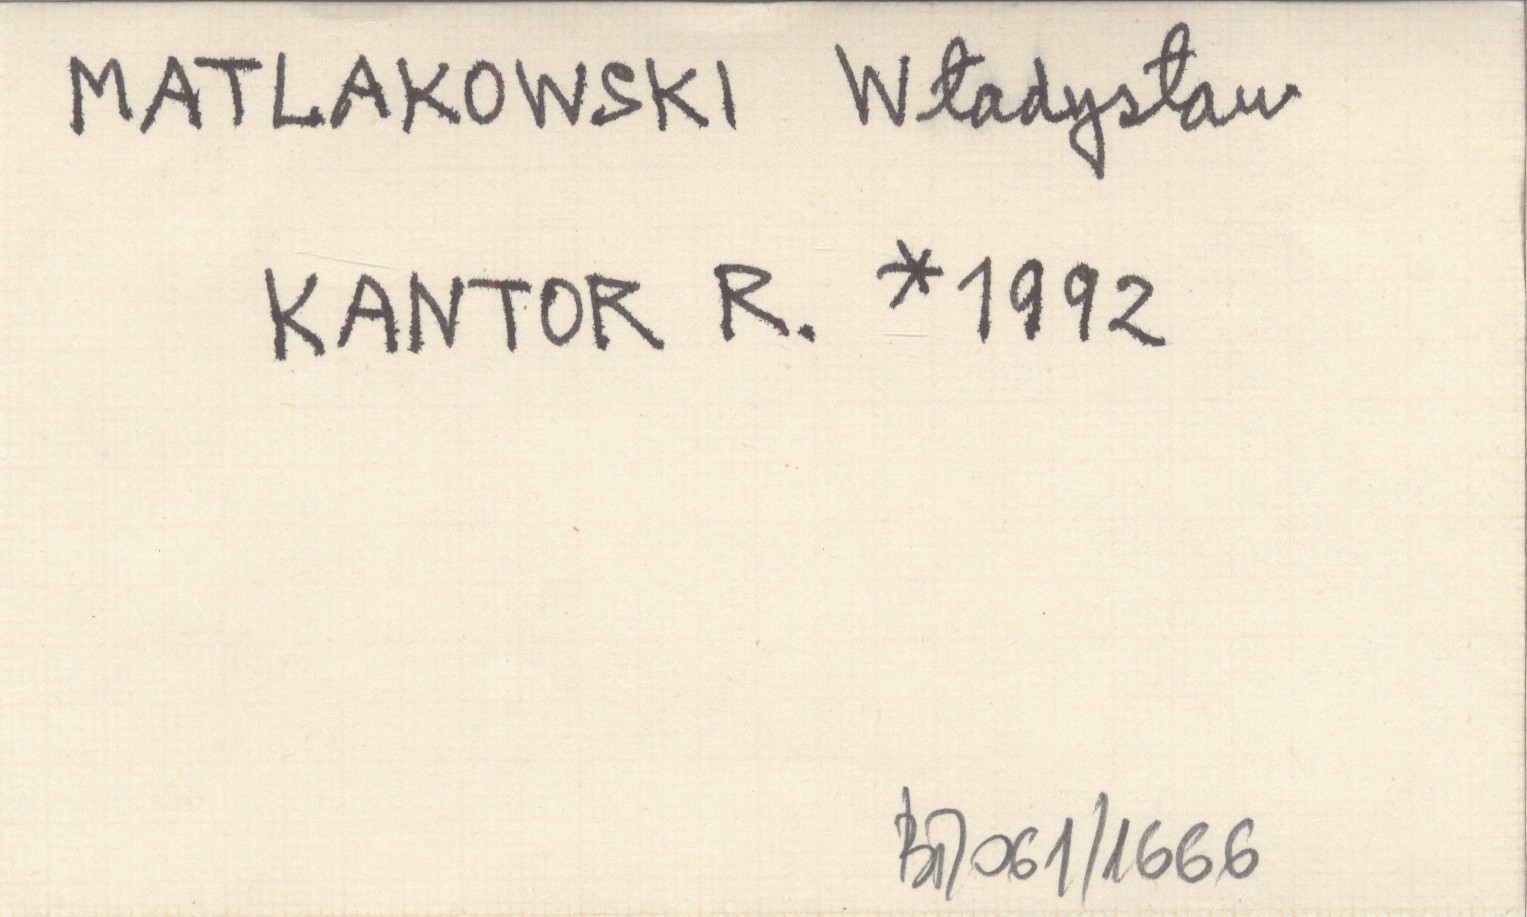 MATLAKOWSKI Władysław
KANTOR R. *1992
061/1666